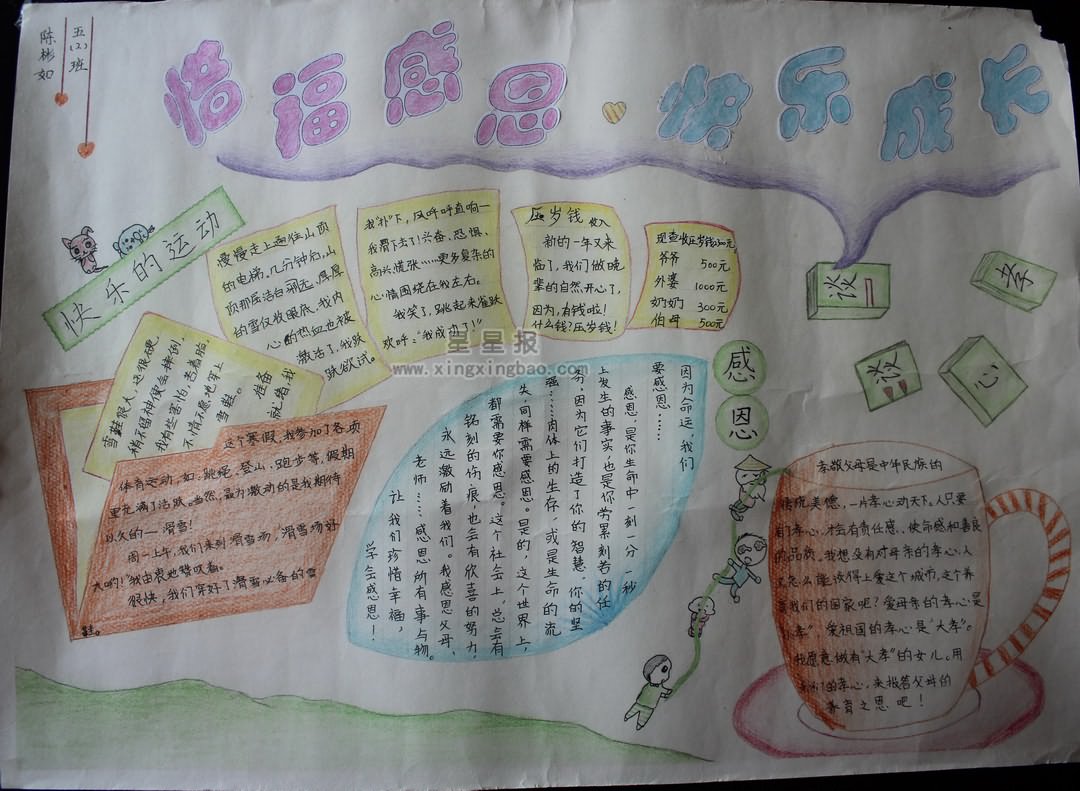 五(2)班
陈彬如
惜福感恩 快乐成长
快乐的运动
这个寒假,我参加了各项
体育运动,如:跳绳、登山、跑步等,假期
里充满了活跃。当然,最为激动的是我期待
以久的——滑雪!
周一上午,我们来到滑雪场,"滑雪场好
大哟!"我由衷地赞叹着。
很快,我们穿好了滑雪必备的雪
鞋。
雪鞋很大,还很硬,
稍不留神便会摔倒,
我有些害怕,苦着脸,
不情不愿地穿上
雪鞋。
准备
就绪,我
慢慢走上通往山顶
的电梯,几分钟后,山
顶那层洁白
的雪仅收眼底,我内
心的热血也被
激活了,我跃
跃欲试。
我"扑"下,风呼呼直响—
我滑下去了!兴奋、恐惧、
高兴、慌张……更多复杂的
心情围绕在我左右。
我笑了,跳起来雀跃
欢呼:"我成功了!"
压岁钱收入
新的一年又来
临了,我们做晚
辈的自然开心了,
因为,有钱啦!
什么钱?压岁钱!
爷爷 500元
外婆 1000元
奶奶 300元
伯母 500元
星星报
www.xingxingbao.com
感恩
因为命运,我们
要感恩……
感恩,是你生命中一刻一分一秒
上发生的事实,也是你劳累刻苦的任
务,因为它们打造了你的智慧、你的坚
强……肉体上的生存,或是生命的流
失,同样需要感恩。是的,这个世界上,
都需要你感恩。这个社会上,总会有
铭刻的伤痕,也会有欣喜的努力,
永远激励着我们。我感恩父母、
老师……感恩所有事与物。
让我们珍惜幸福,
学会感恩!
谈一谈孝心
孝敬父母是中华民族的
传统美德,一片孝心动天下。人只要
有孝心,才会有责任感、使命感和善良
的品质。我想没有对母亲的孝心,人
又怎么能谈得上爱这个城市,这个养
育我们的国家呢?爱母亲的孝心是
"小孝",爱祖国的孝心是"大孝"。
我愿意做有"大孝"的女儿。用
我们的孝心,来报答父母的
养育之恩吧!